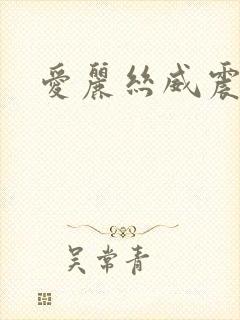 愛麗絲威震
吴常青